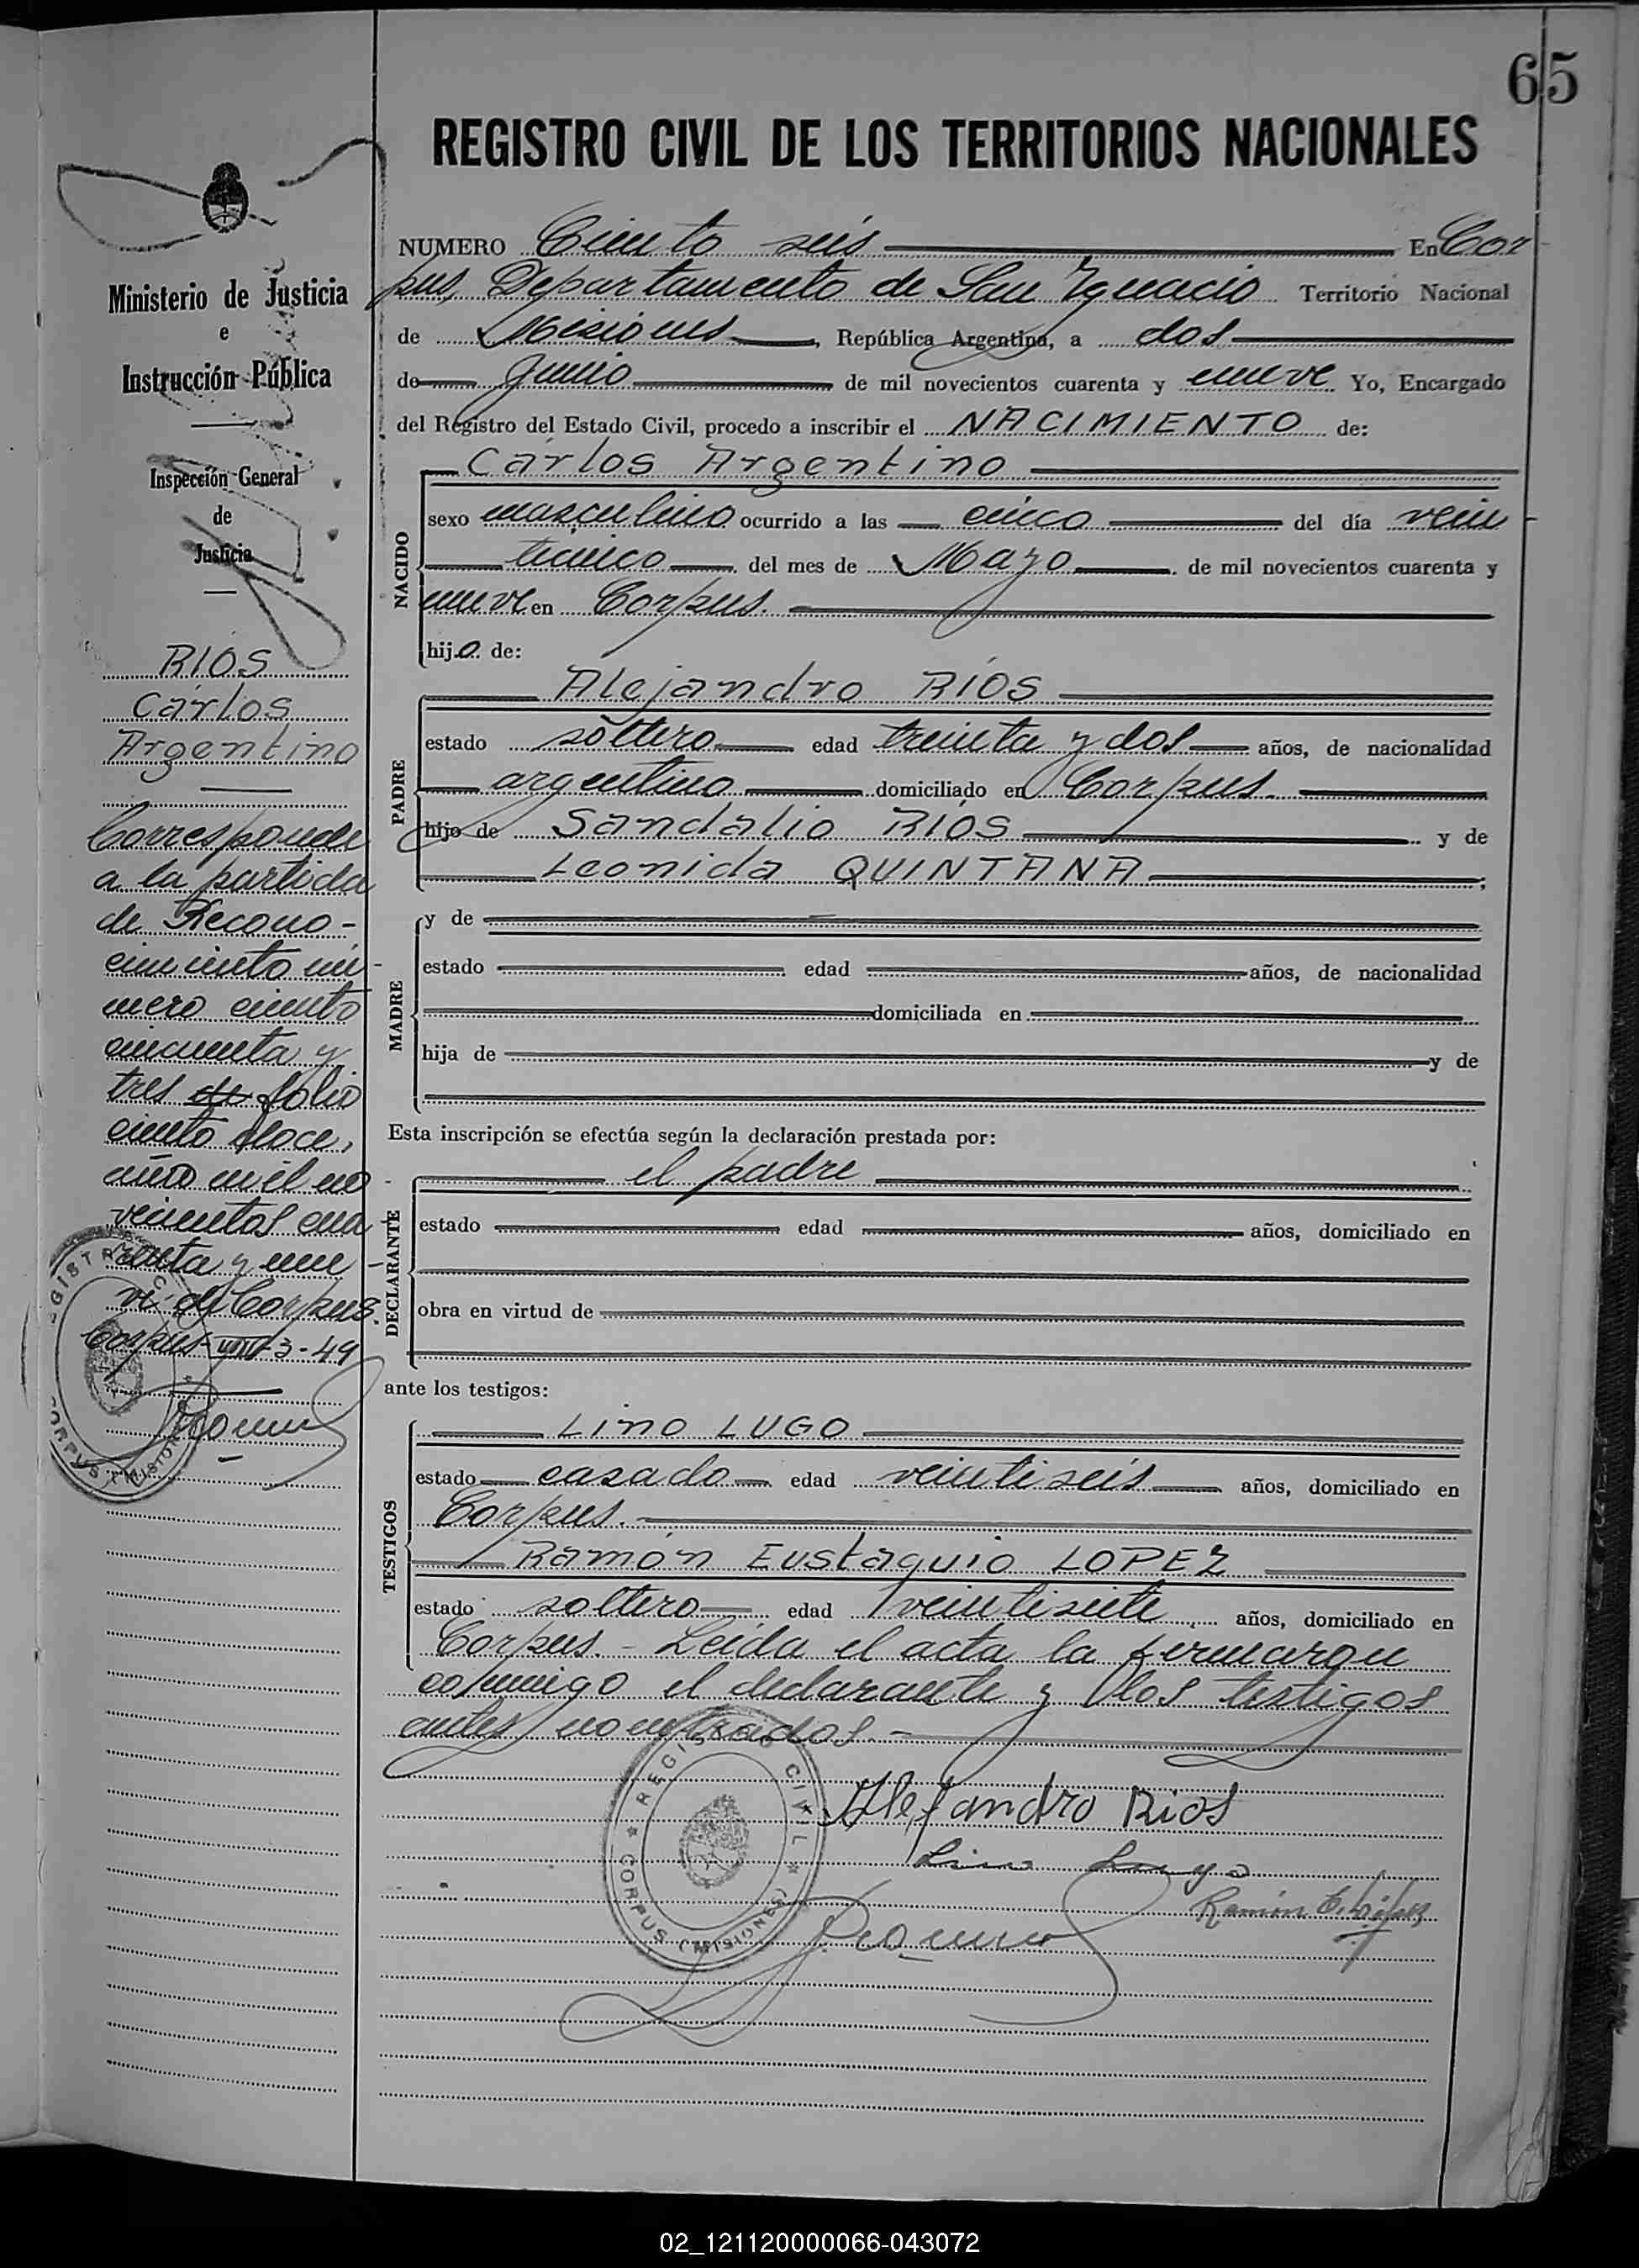 65
REGISTRO CIVIL DE LOS TERRITORIOS NACIONALES
Ministerio de Justicia
e
Instrucción Pública
Inspección General
de
Justicia
RIOS
Carlos
Argentino
Corresponde
a la partida
de Recono-
cimiento nú-
mero ciento
cincuenta y
tres de folio
ciento doce,
año mil no-
vecientos cua-
renta y nue-
ve de Corpus.
Corpus-VIII-3-49
REGISTRO CIVIL
CORPUS (MISIONES)
NUMERO Ciento seis En Cor-
pus, Departamento de San Ygnacio Territorio Nacional
de Misiones, República Argentina, a dos
de Junio de mil novecientos cuarenta y nueve Yo, Encargado
del Registro del Estado Civil, procedo a inscribir el NACIMIENTO de:
NACIDO
Carlos Argentino
sexo masculino ocurrido a las cinco del día vein-
ticinco del mes de Mayo de mil novecientos cuarenta y
nueve en Corpus.
hijo de:
PADRE
Alejandro RÍOS
estado soltero edad treinta y dos años, de nacionalidad
argentino domiciliado en Corpus.
hijo de Sandalio RIOS y de
Leonida QUINTANA;
MADRE
y de
estado edad años, de nacionalidad
domiciliada en
hija de y de
Esta inscripción se efectúa según la declaración prestada por:
DECLARANTE
el padre
estado edad años, domiciliado en
obra en virtud de
ante los testigos:
TESTIGOS
Lino LUGO
estado casado edad veintiseis años, domiciliado en
Corpus.
Ramón Eustaquio LOPEZ
estado soltero edad veintisiete años, domiciliado en
Corpus. - Leída el acta la firmaron
conmigo el declarante y los testigos
antes nombrados. -
Alejandro Rios
Lino Lugo
Ramón E. López
REGISTRO CIVIL
CORPUS (MISIONES)
02_121120000066-043072